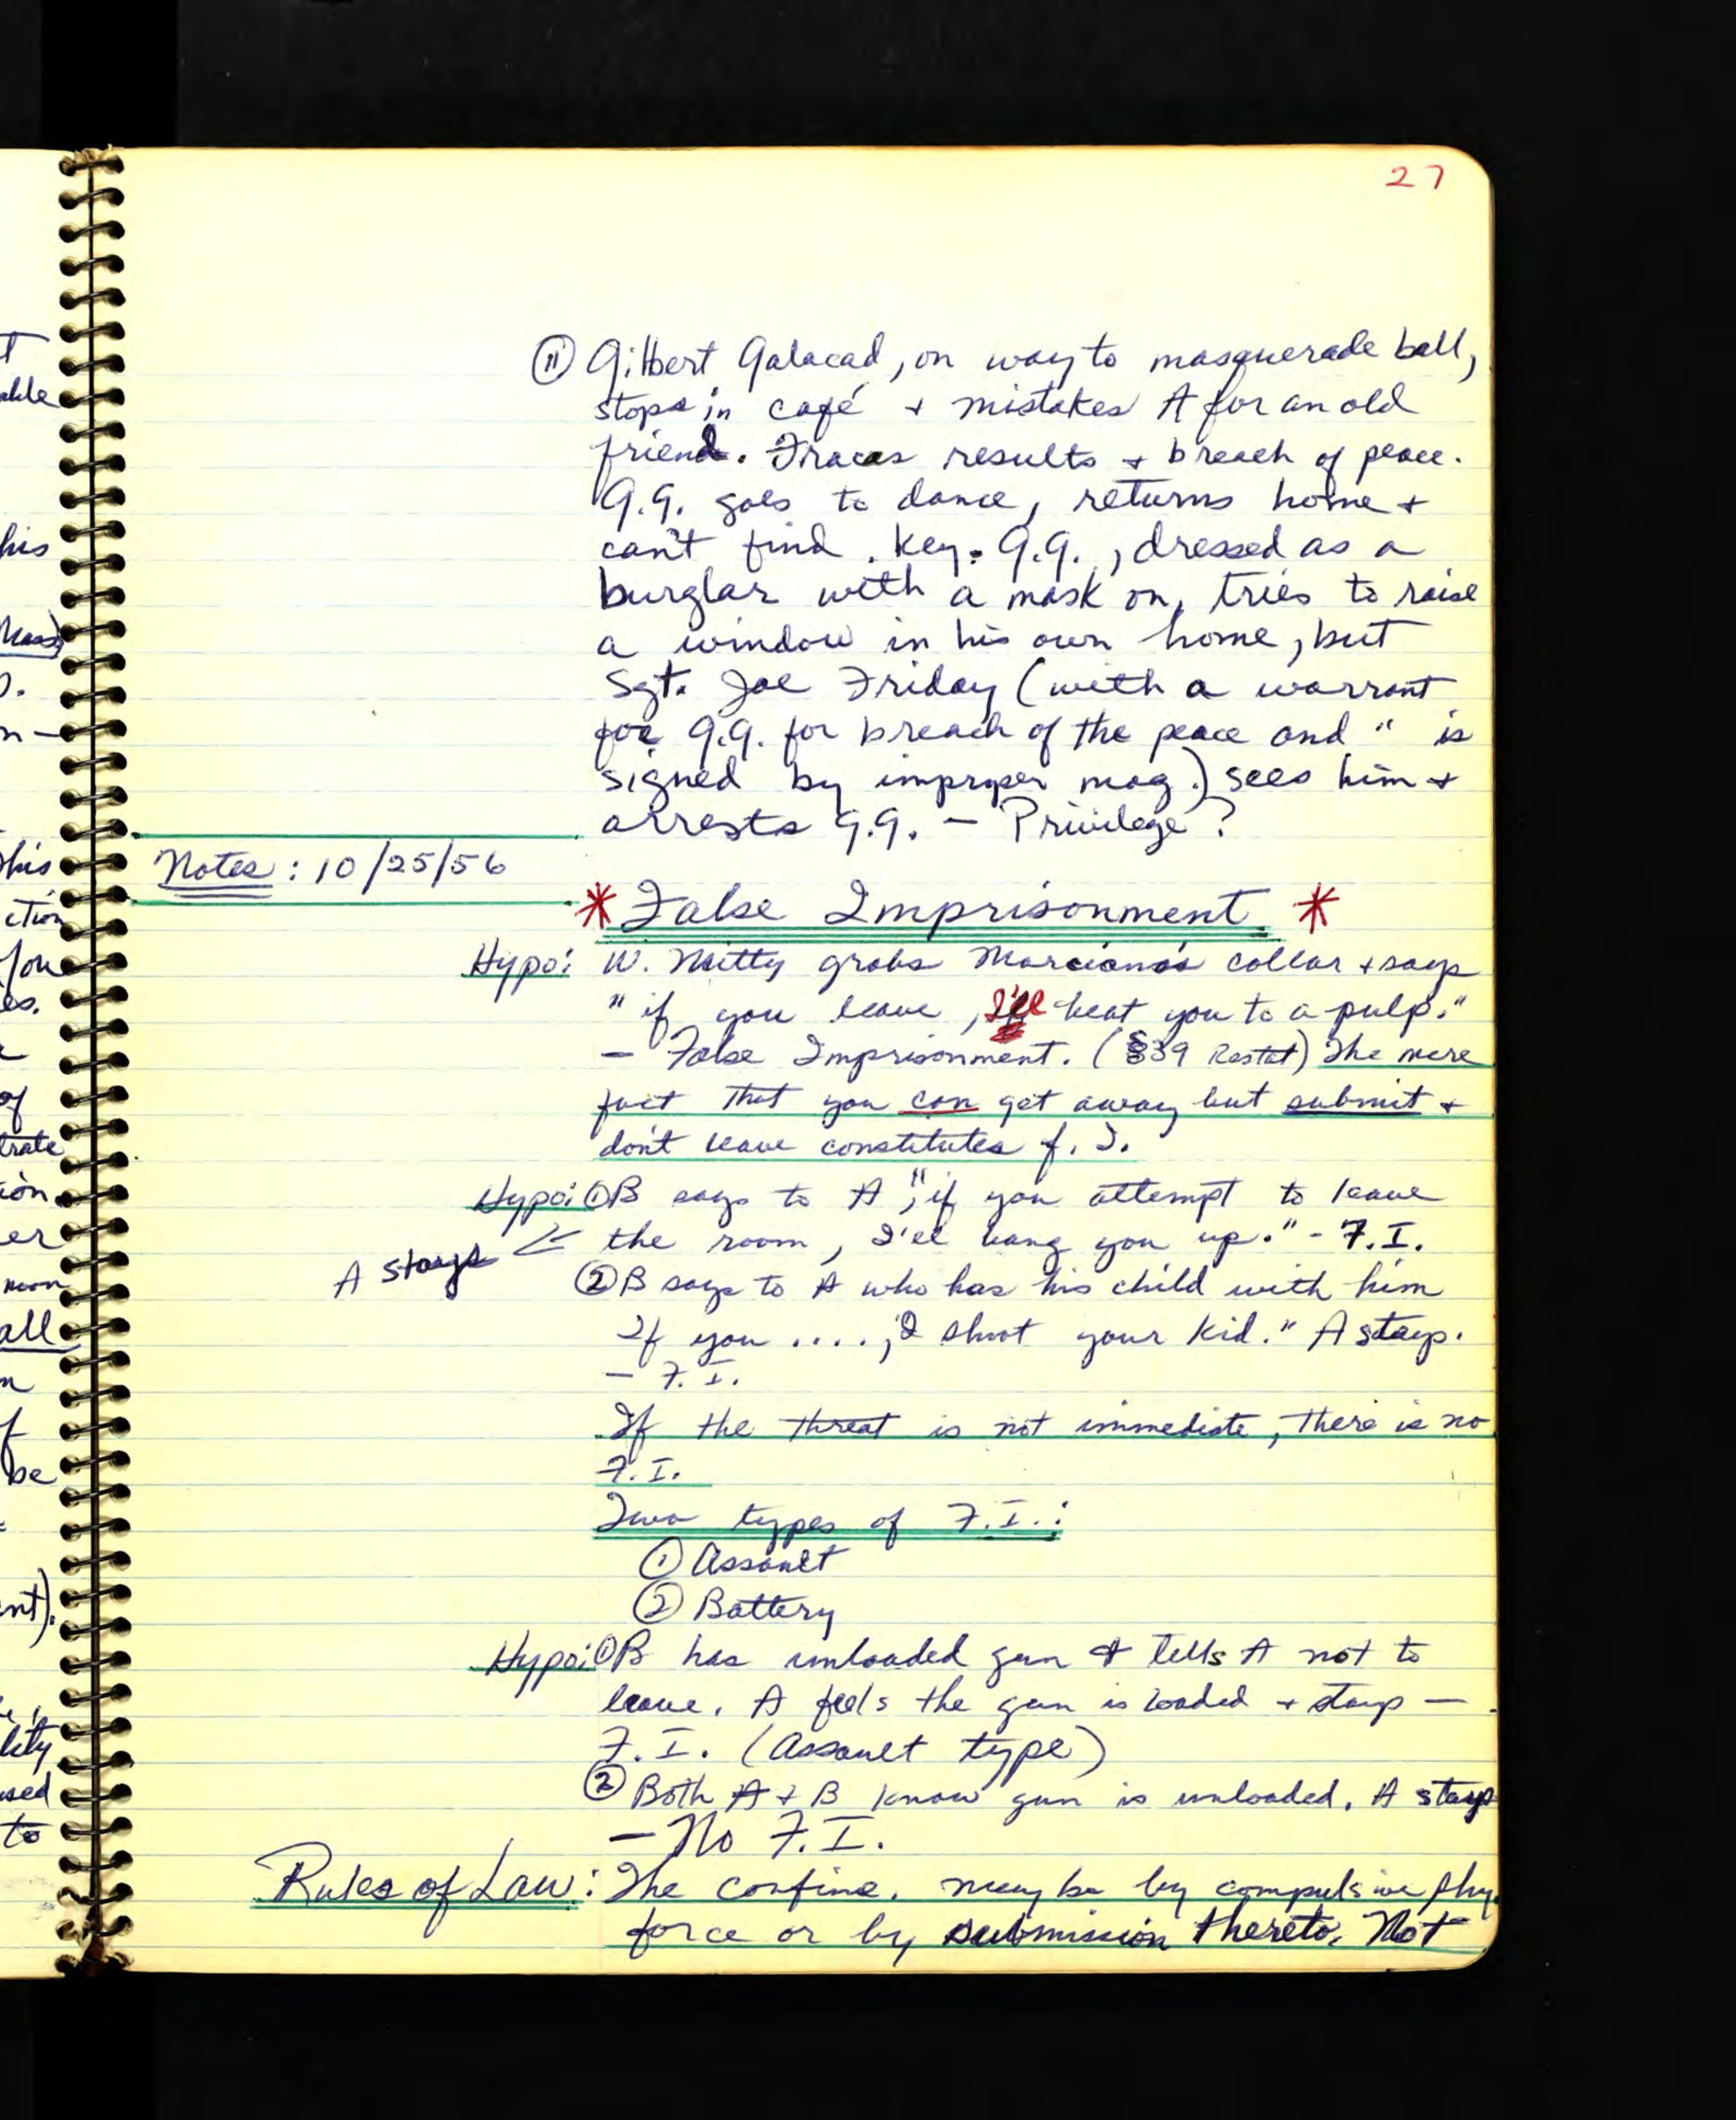 27
⑪ Gilbert Galacad, on way to masquerade ball,
stops in café + mistakes A for an old
friend. Fracas results + breach of peace.
G.G. goes to dance, returns home +
can't find key. G.G., dressed as a
burglar with a mask on, tries to raise
a window in his own home, but
Sgt. Joe Friday (with a warrant
for G.G. for breach of the peace and " is
signed by improper mag.) sees him +
arrests G.G. - Privilege?
Notes: 10/25/56
* False Imprisonment *
Hypo: W. Mitty grabs Marciano's collar + says
"if you leave, I'll beat you to a pulp."
- False Imprisonment. (§39 Restat) The mere
fact that you can get away but submit +
don't leave constitutes f. I.
Hypo: ① B says to A, "if you attempt to leave
the room, I'll bang you up." - F.I.
A stays
② B says to A who has his child with him
If you ...., I shoot your kid." A stays.
- F.I.
If the threat is not immediate, there is no
F.I.
Two types of F.I.:
① Assault
② Battery
Hypo: ① B has unloaded gun + tells A not to
leave. A feels the gun is loaded + stays -
F.I. (Assault type)
② Both A + B know gun is unloaded. A stays
- No F.I.
Rules of Law: The confine. may be by compulsive phy.
force or by submission thereto. Not
t
able
his
Mass)
n-
this
ction
es.
of
trate
ion
er
all
n
f
be
ent).
lity
used
to